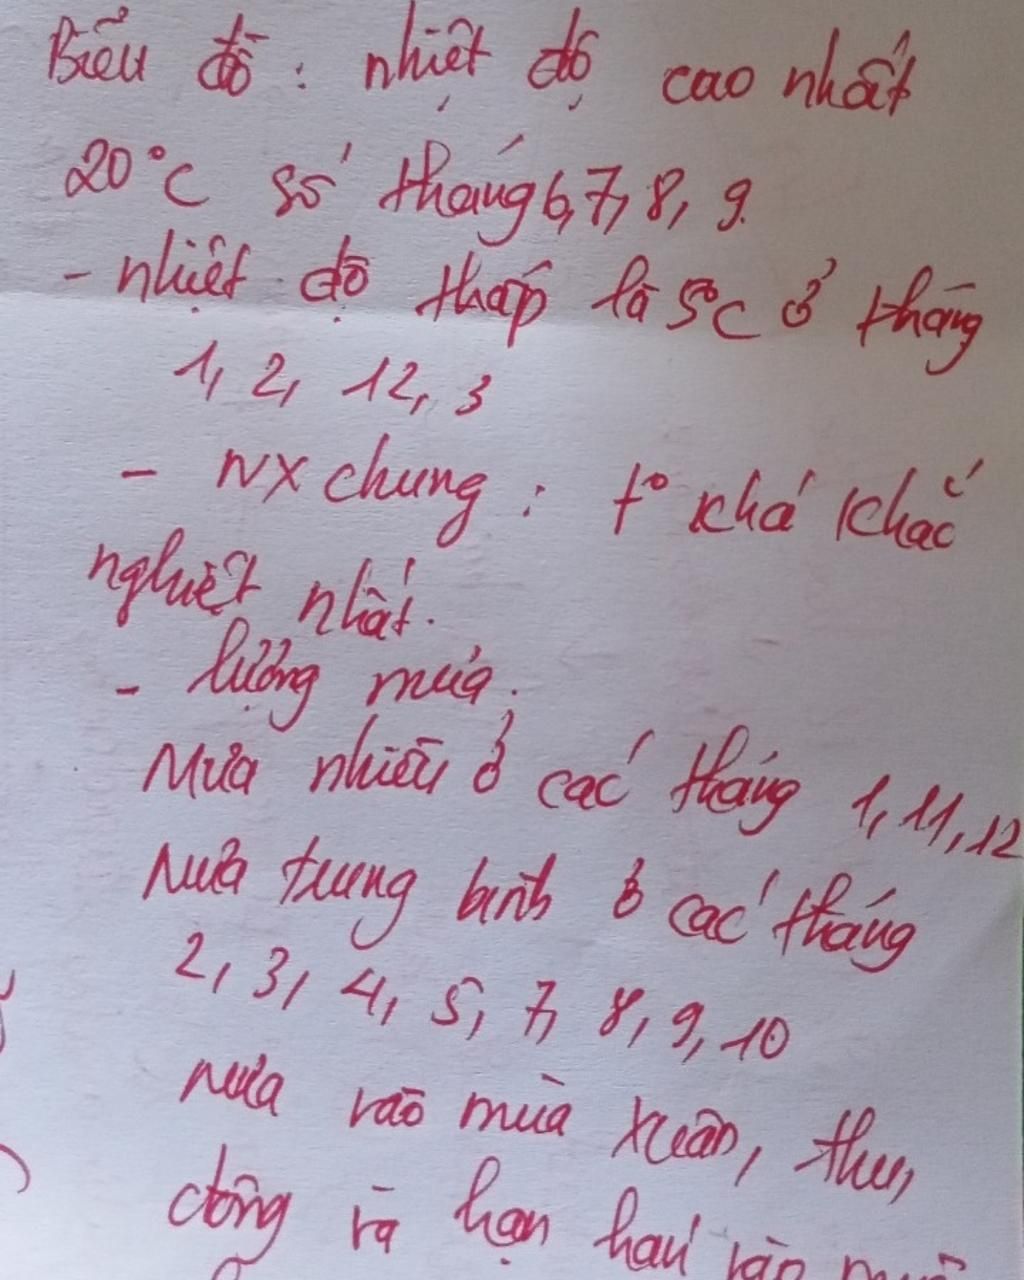 Biểu đồ : nhiệt độ cao nhất
20°C số tháng 6, 7, 8, 9.
- nhiệt độ thấp là 5°C ở tháng
1, 2, 12, 3
- NX chung : t° khá khắc
nghiệt nhất.
- lượng mưa.
Mưa nhiều ở các tháng 1, 11, 12
Mưa trung bình ở các tháng
2, 3, 4, 5, 7, 8, 9, 10
Mưa vào mùa xuân, thu,
đông và hạn hán vào